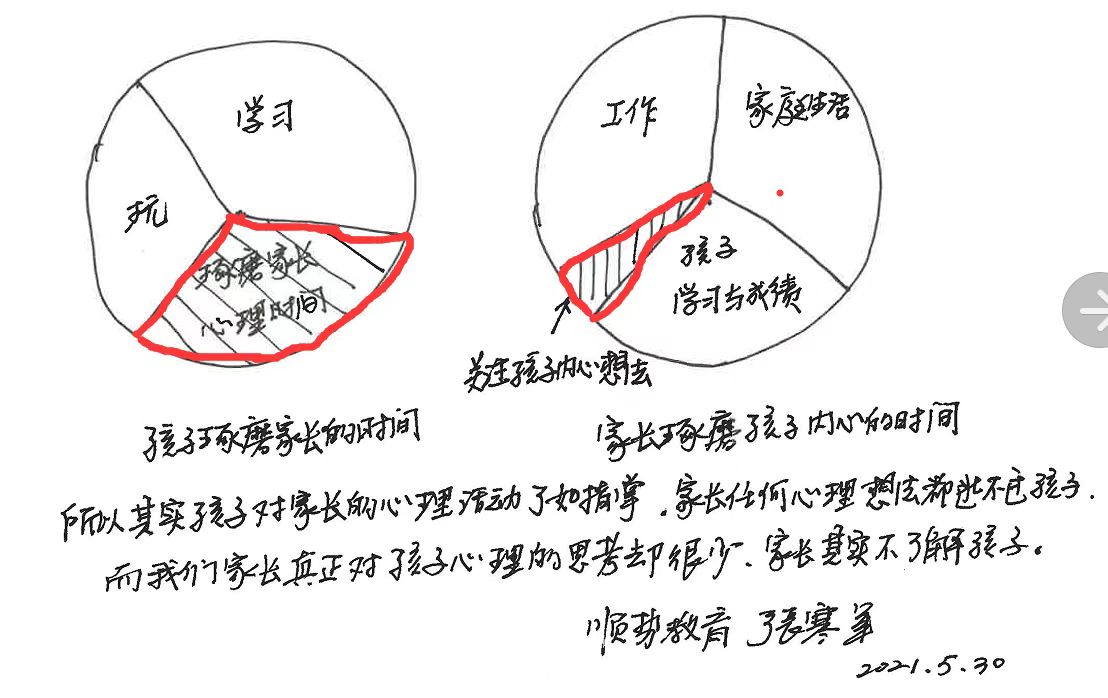 学习
玩
琢磨家长
心理时间
工作
家庭生活
孩子
学习与成绩
关注孩子内心想法
孩子琢磨家长的时间
家长琢磨孩子内心的时间
所以其实孩子对家长的心理活动了如指掌.家长任何心理想法都逃不过孩子.
而我们家长真正对孩子心理的思考却很少、家长其实不了解孩子。
顺势教育 张寒军
2021.5.30